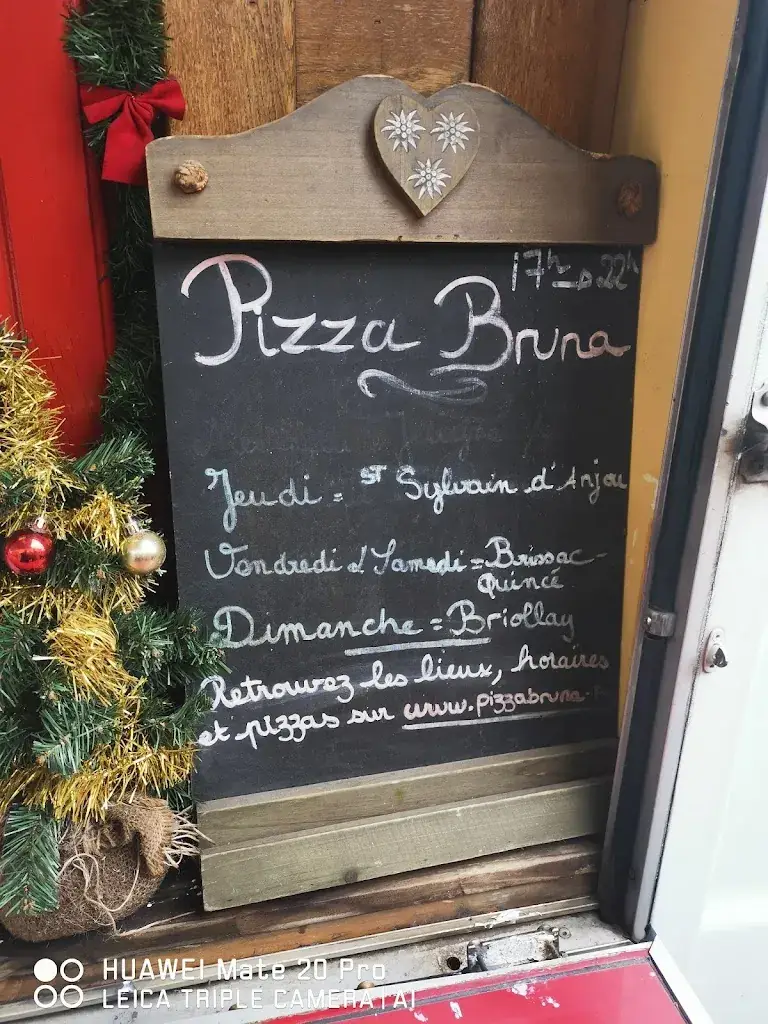 17h → 22h
Pizza Bruna
Jeudi = ST Sylvain d'Anjou
Vendredi & Samedi = Brissac-
Quincé
Dimanche = Briollay
Retrouvez les lieux, horaires
et pizzas sur www.pizzabruna.
HUAWEI Mate 20 Pro
LEICA TRIPLE CAMERA(AI)